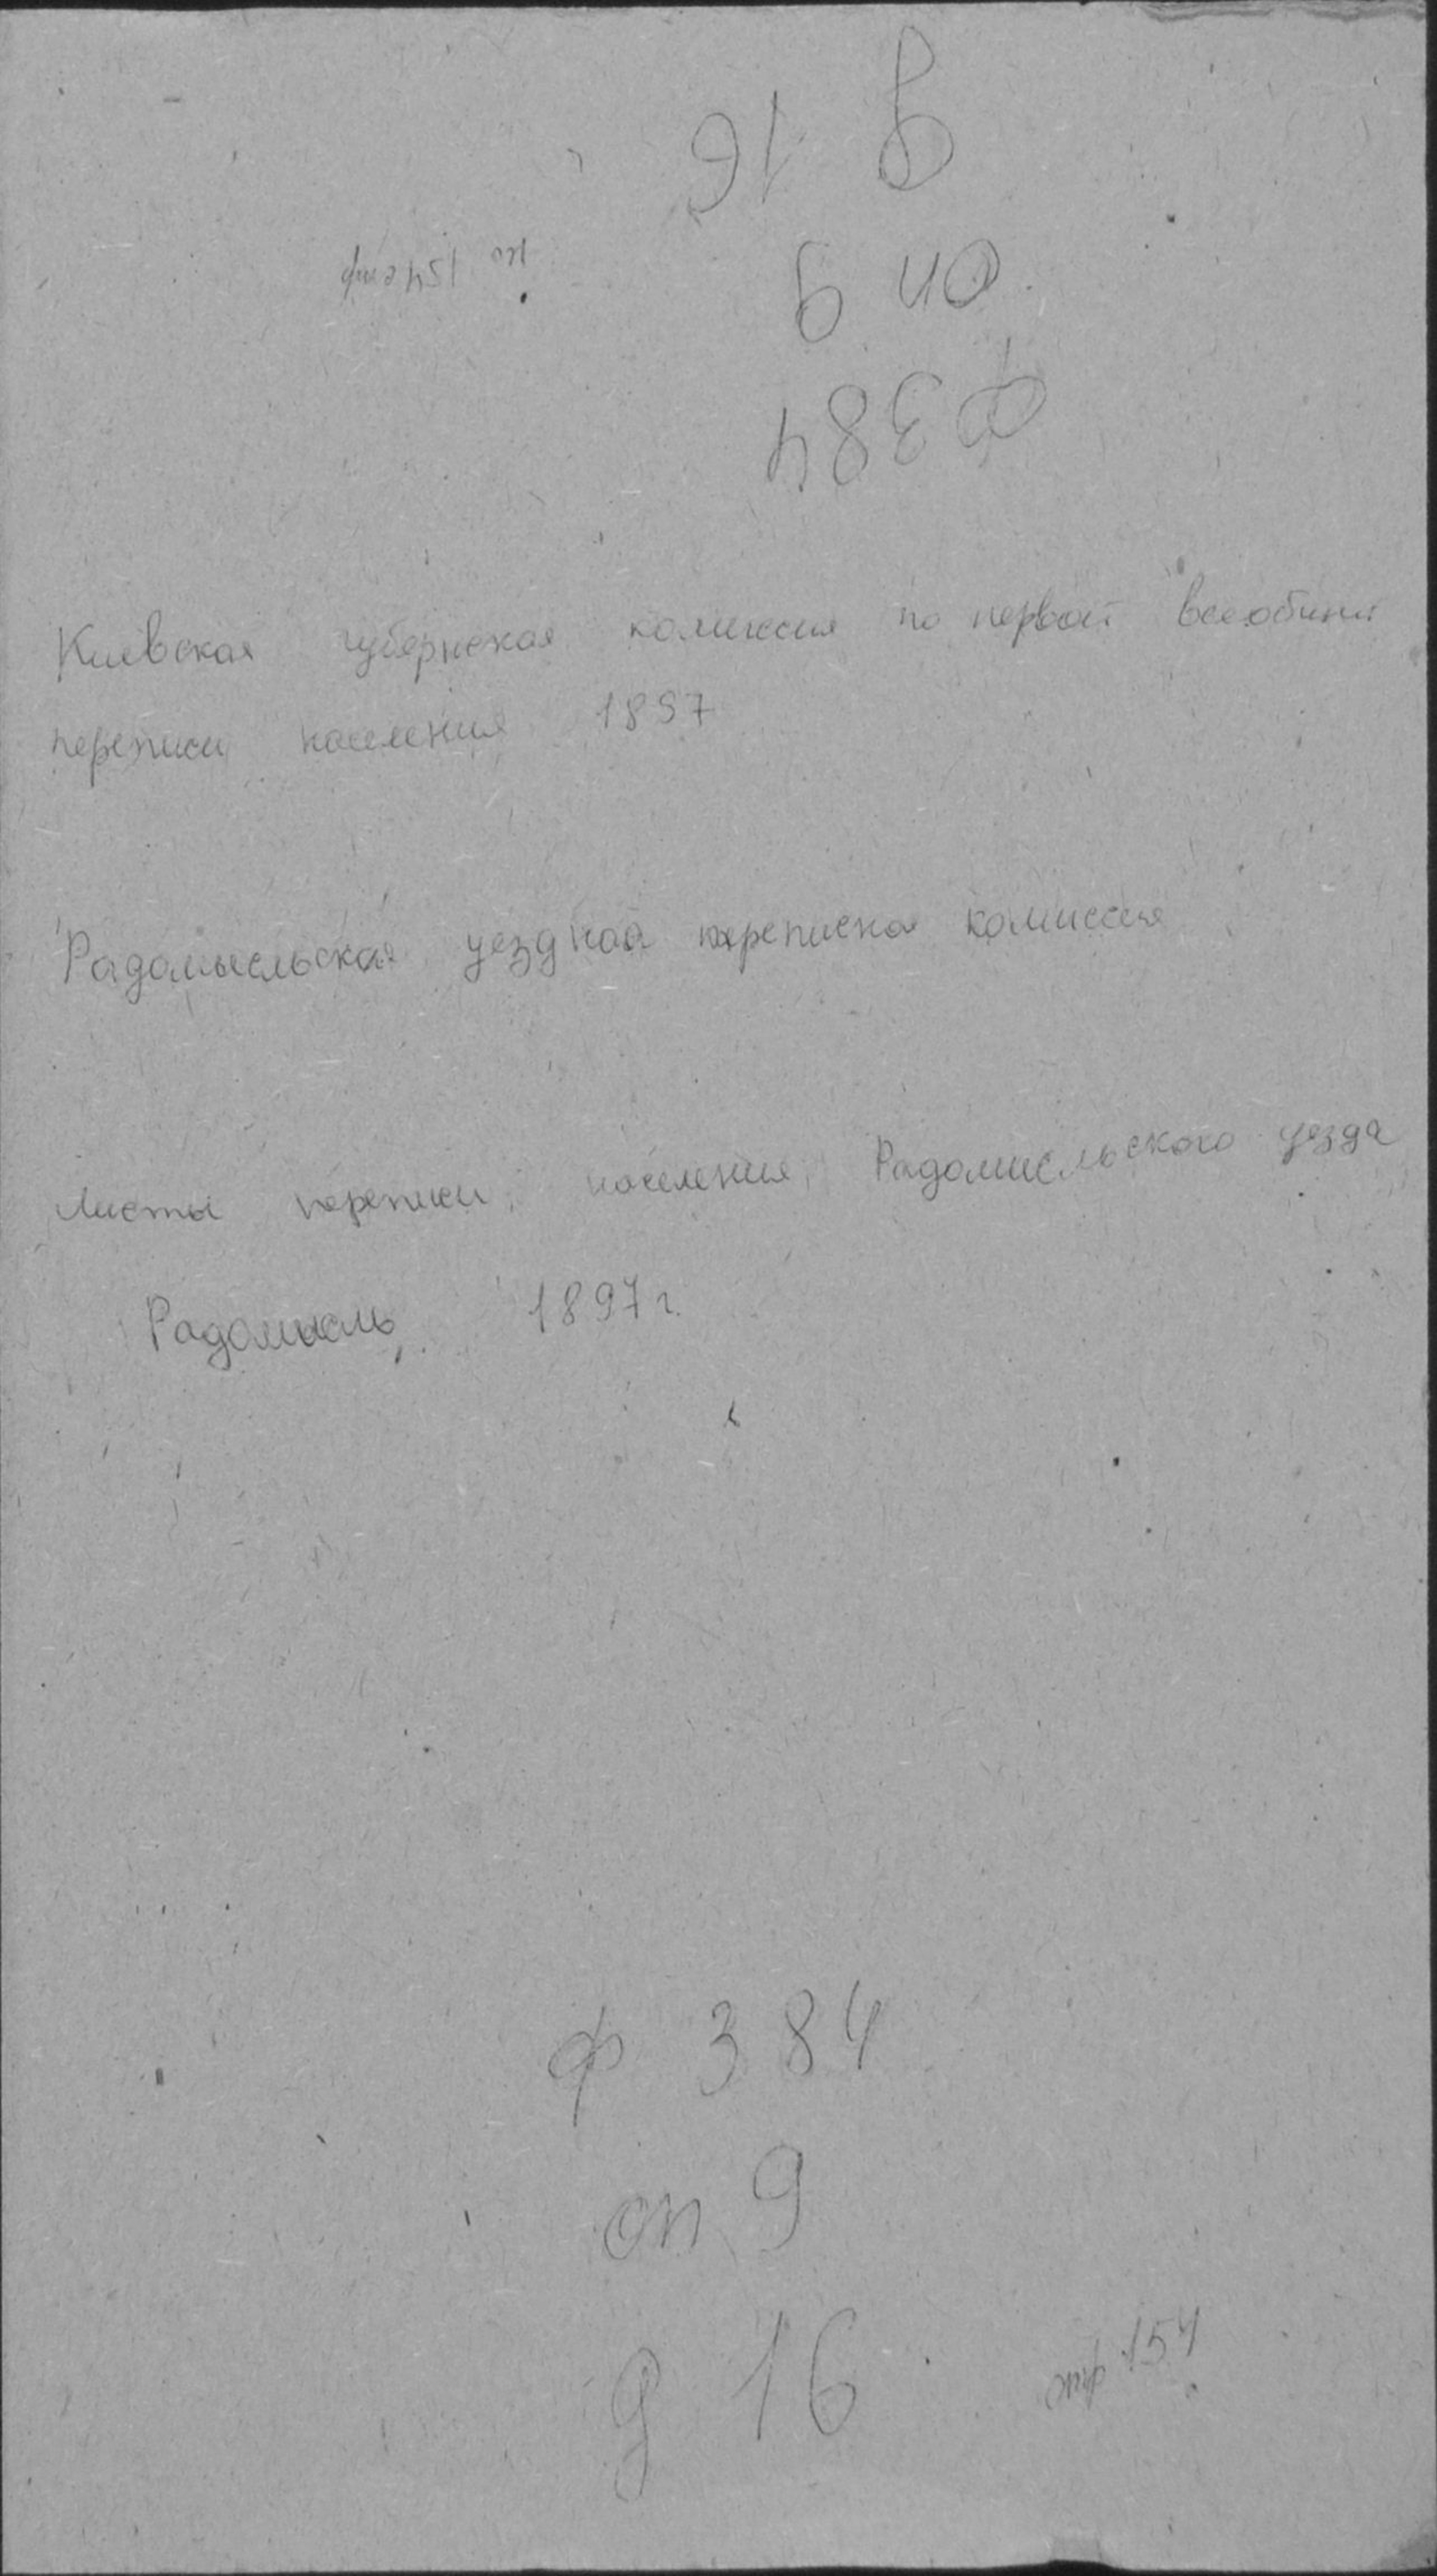 Ф 384
оп 9
д 16
154 стр
Киевская губернская комиссия по первой всеобщей
переписи населения 1897
Радомысльская уездная переписная комиссия
Листы переписи населения Радомисльского уезда
Радомысль 1897 г.
ф 384
оп 9
д 16
стр 154